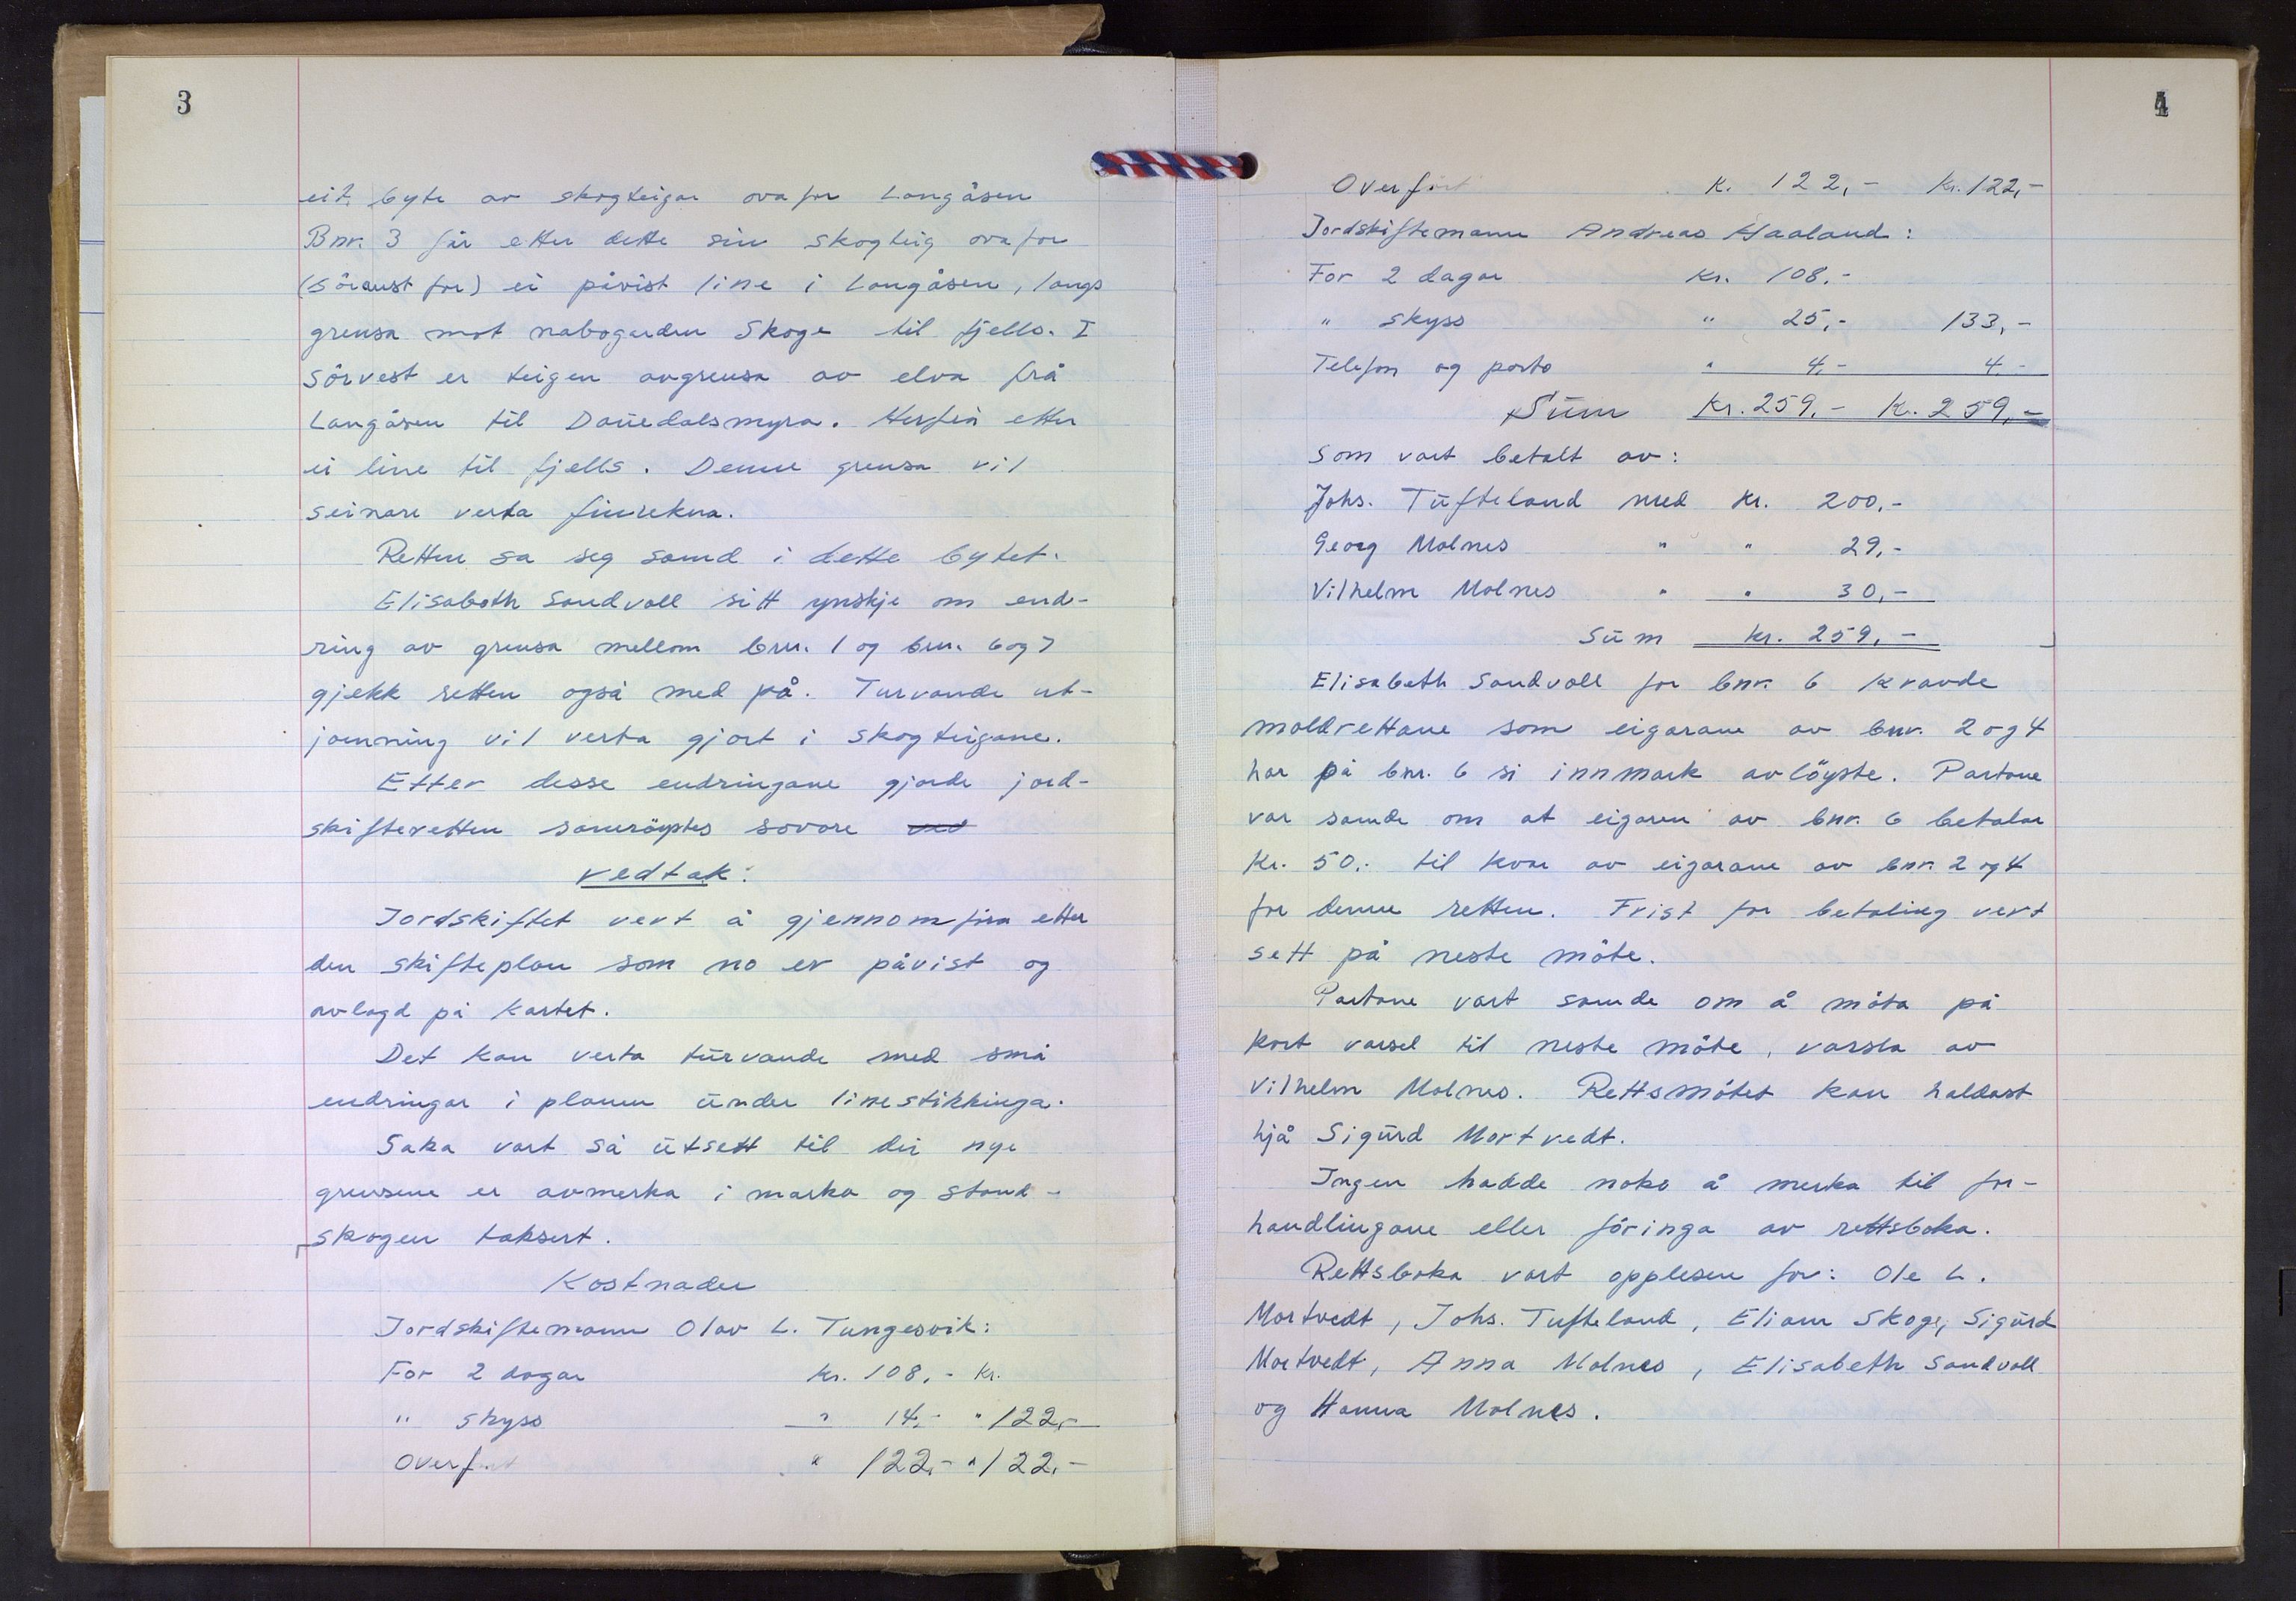 3
eit byte av skogteigar ovafor Langåsen
Bnr. 3 får etter dette sin skogteig ovafor
(söraust for) ei påvist line i Langåsen, langs
grensa mot nabogarden Skoge til fjells. I
Sörvest er teigen avgrensa av elva frå
Langåsen til Dauedalsmyra. Herfrå etter
ei line til fjells. Denne grensa vil
seinare verta finrekna.
Retten sa seg samd i dette bytet.
Elisabeth Sandvoll sitt ynskje om end-
ring av grensa mellom bnr. 1 og bnr. 6 og 7
gjekk retten også med på. Turvande ut-
jamning vil verta gjort i skogteigane.
Etter desse endringane gjorde jord-
skifteretten samröystes sovore ved
vedtak:
Jordskiftet vert å gjennomföra etter
den skifteplan som no er påvist og
avlagd på kartet.
Det kan verta turvande med små
endringar i planen under linestikkinga.
Saka vart så utsett til dei nye
grensene er avmerka i marka og stand-
skogen taksert.
Kostnader
Jordskiftemann Olav L. Tungesvik:
For 2 dagar kr. 108.- kr.
" skyss " 14,- " 122,-
Overfört " 122,- " 122,-
4
Overfört K. 122,- Kr. 122,-
Jordskiftemann Andreas Haaland:
For 2 dagar Kr. 108,-
" skyss " 25,- 133,-
Telefon og porto " 4,- 4 -
Sum Kr. 259,- K. 259,-
Som vart betalt av:
Johs. Tufteland med Kr. 200,-
Georg Molnes " " 29,-
Vilhelm Molnes " " 30,-
Sum kr. 259,-
Elisabeth Sandvoll for bnr. 6 kravde
moldrettane som eigarane av bnr. 2 og 4
har på bnr. 6 si innmark avlöyste. Partane
var samde om at eigaren av bnr. 6 betalar
Kr. 50,- til kvar av eigarane av bnr. 2 og 4
for denne retten. Frist for betaling vert
sett på neste möte.
Partane vart samde om å möta på
kort varsel til neste möte, varsla av
Vilhelm Molnes. Rettsmötet kan haldast
hjå Sigurd Mortvedt.
Ingen hadde noko å merka til for-
handlingane eller föringa av rettsboka.
Rettsboka vart opplesen for: Ole L.
Mortvedt, Johs. Tufteland, Eliam Skoge, Sigurd
Mortvedt, Anna Molnes, Elisabeth Sandvoll
og Hanna Molnes.